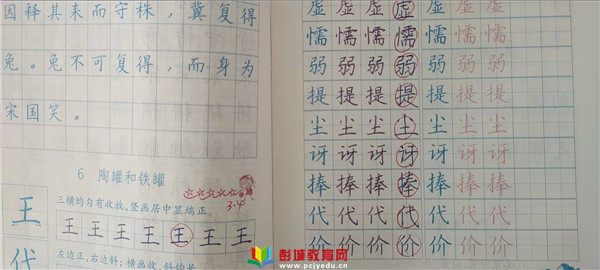 因释其耒而守株，冀复得
兔。兔不可复得，而身为
宋国笑。
6 陶罐和铁罐
三横均匀有收放，竖画居中显端正。
3.4
王
王 王 王 王 王 王 王
左边正，右边斜；横画收，斜钩长
代
虚 虚 虚 虚 虚 虚 虚
懦 懦 懦 懦 懦 懦 懦
弱 弱 弱 弱 弱 弱 弱
提 提 提 提 提 提 提
尘 尘 尘 尘 尘 尘 尘
讶 讶 讶 讶 讶 讶 讶
捧 捧 捧 捧 捧 捧 捧
代 代 代 代 代 代 代
价 价 价 价 价 价 价
彭城教育网
www.pcjyedu.cn